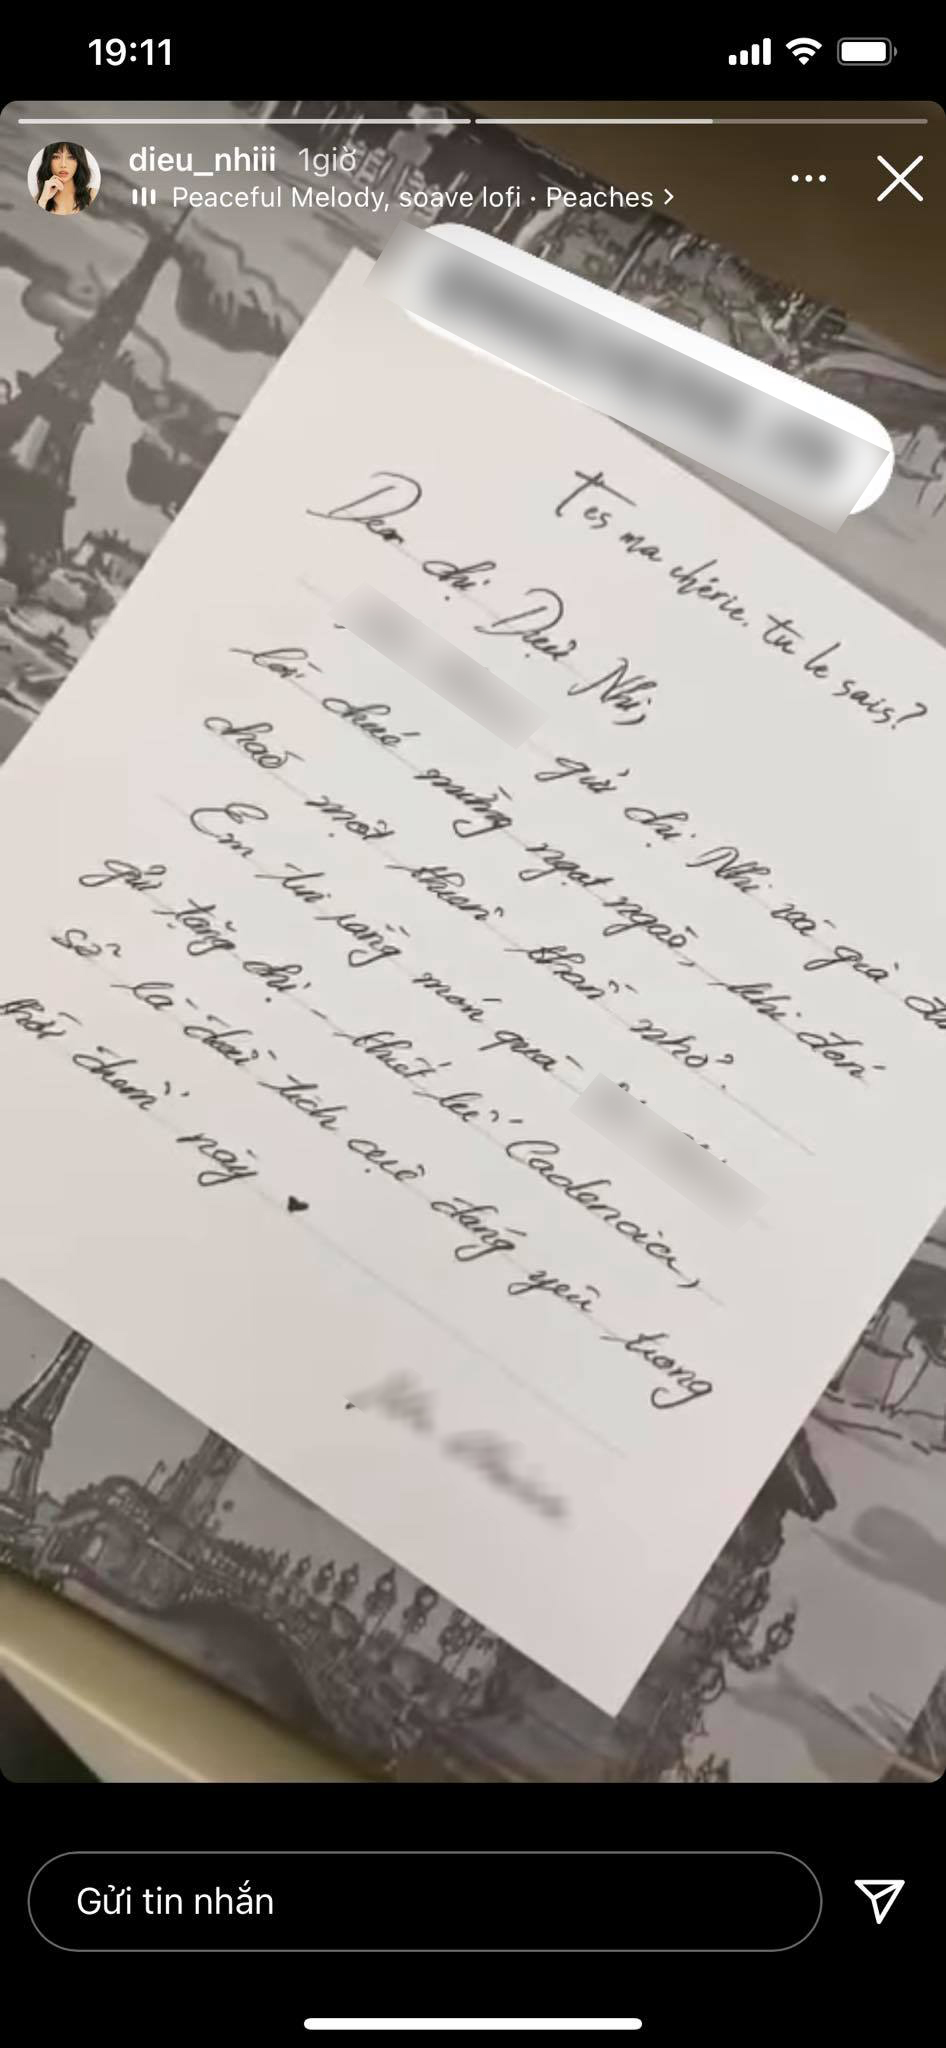 19:11
dieu_nhiii 1giờ
Peaceful Melody, soave lofi · Peaches >
T'es ma chérie. tu le sais?
Dear chị Diệu Nhi,
gửi chị Nhi và gia
lời chúc mừng ngọt ngào, khi đón
chào một thiên thần nhỏ.
Em tin rằng món quà
gửi tặng chị - thiết kế Cadenaica,
sẽ là dấu tích cực đáng yêu trong
thời điểm này ♥
Gửi tin nhắn